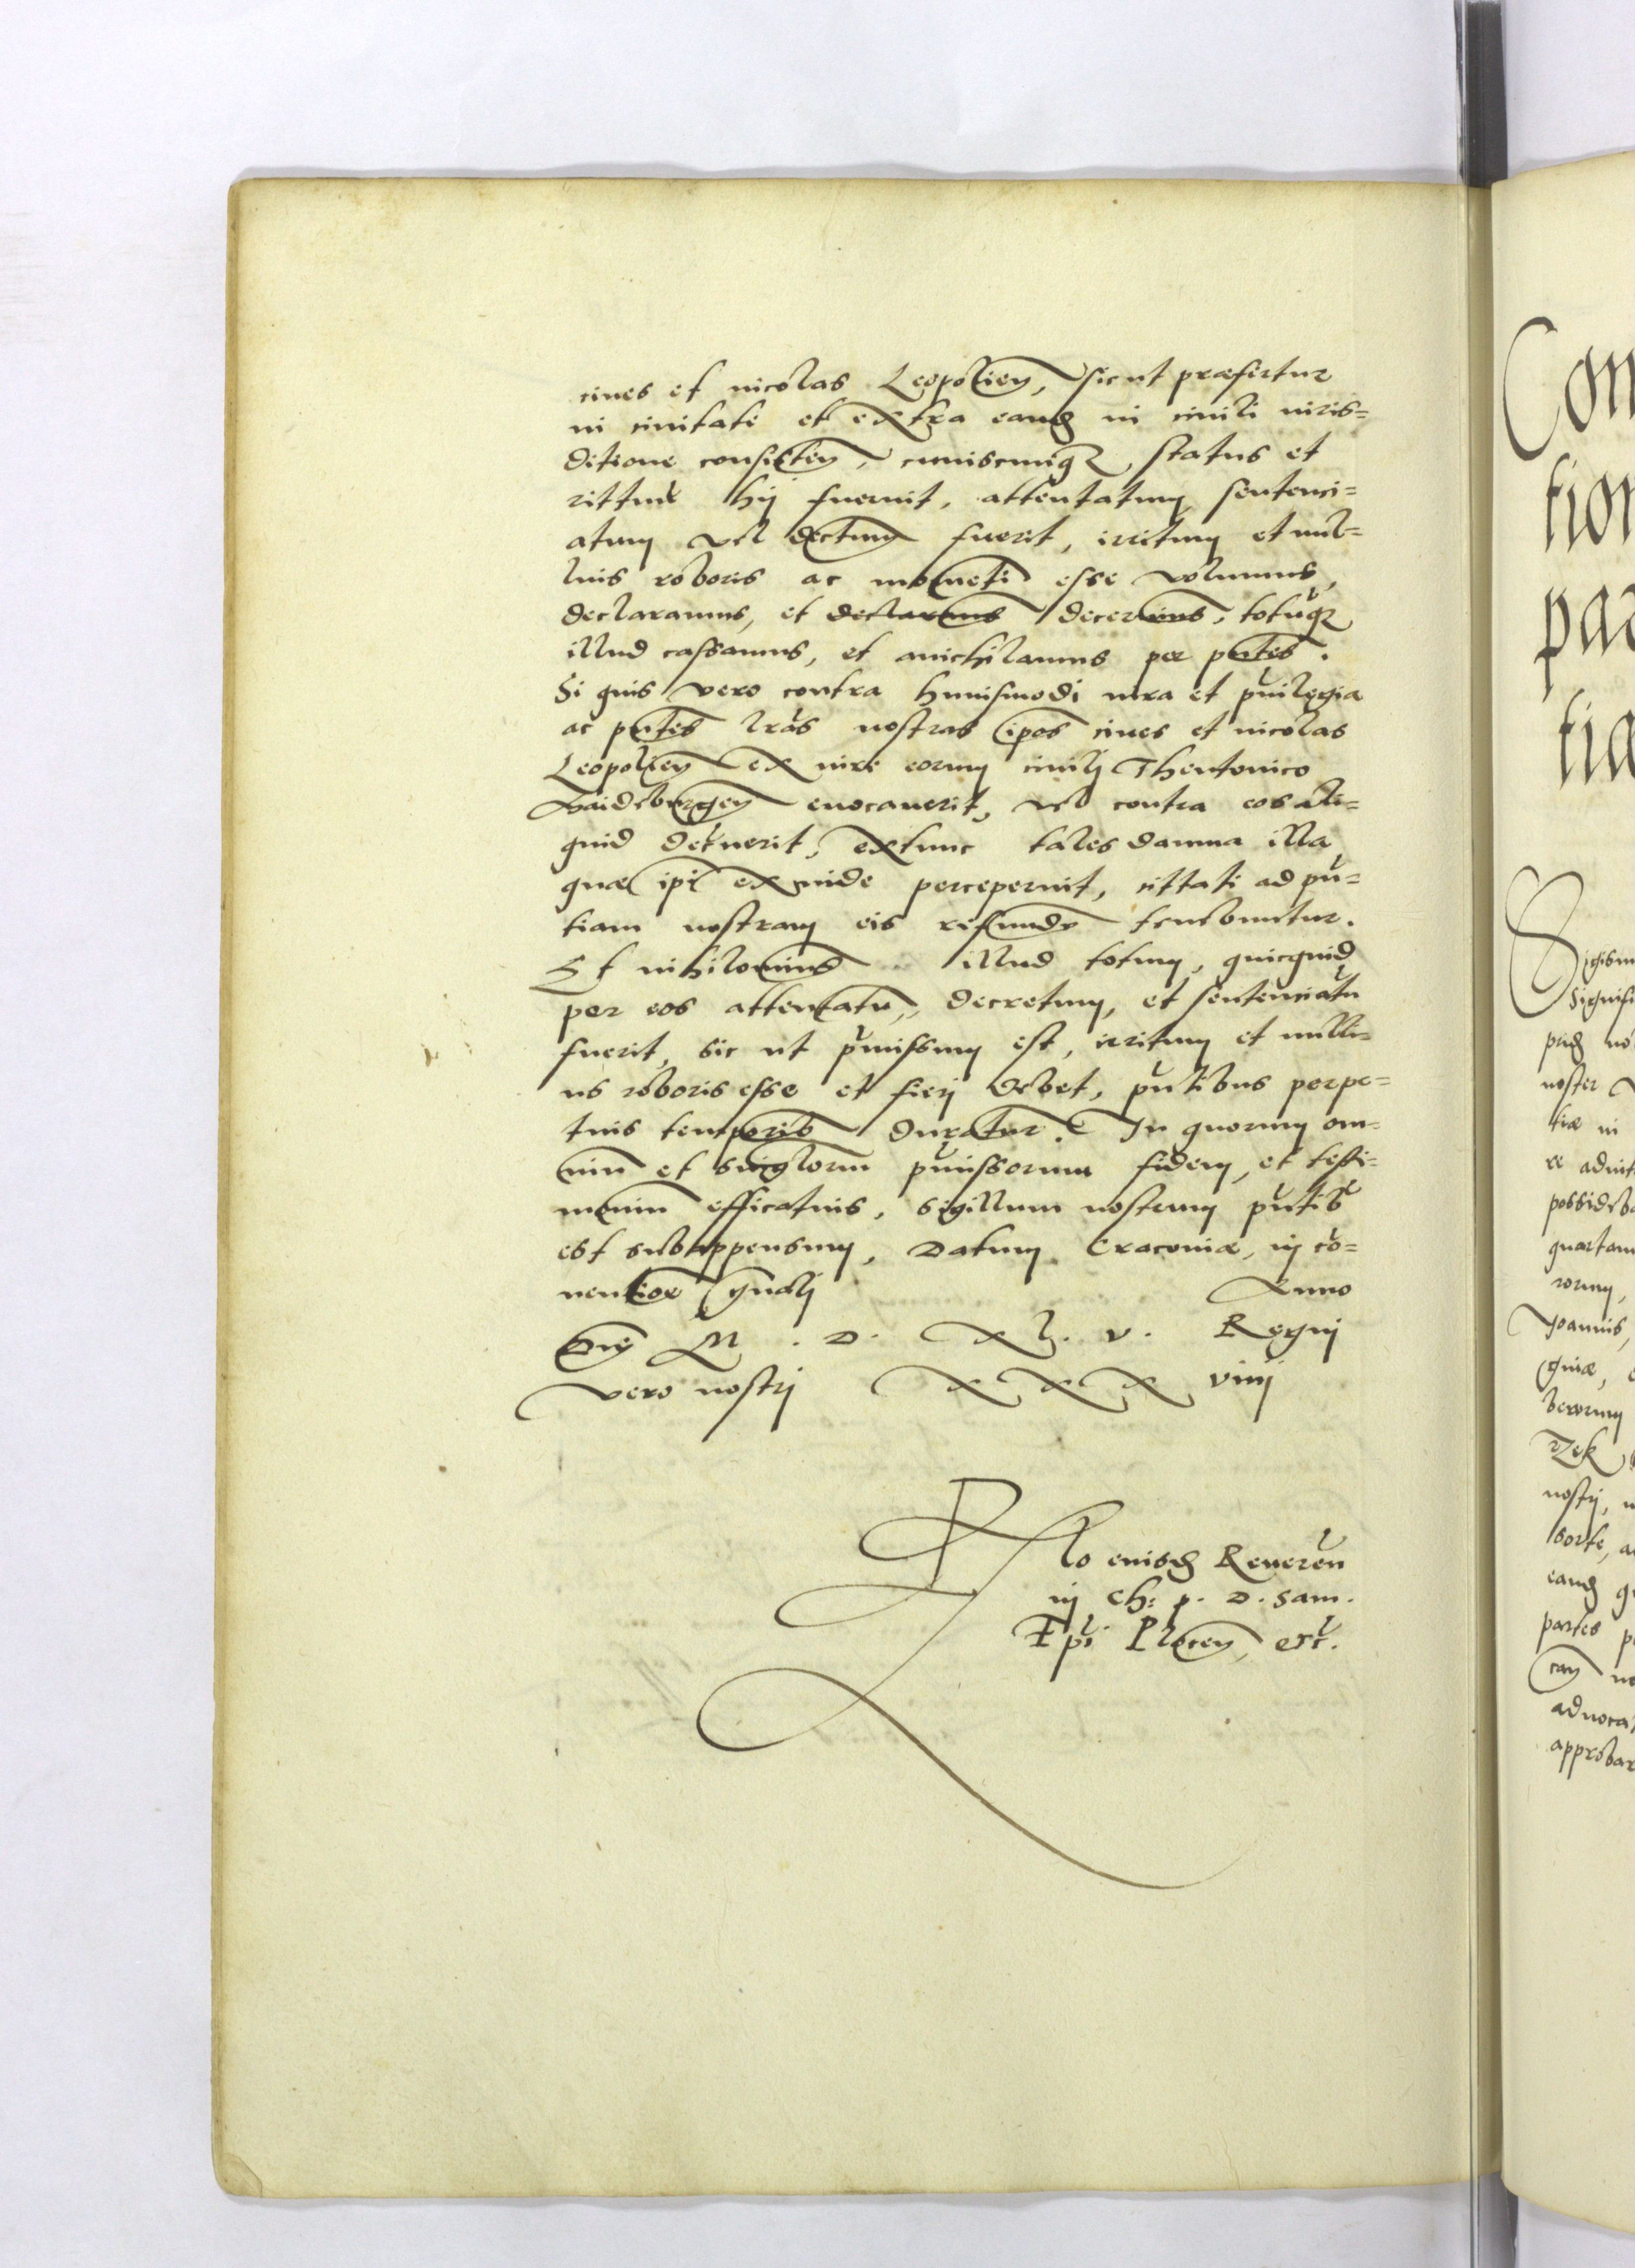 ciues et incolas Leopolien, sicut præfertur
in ciuitate et extra eand in ciuili iuris=
ditione consisten, cuiuscunqz status et
rittus hij fuerint, attentatum, sentenci=
atum vel dectum fuerit, irritum et nul=
lius roboris ac momēti esse volumus,
declaramus, et declaramus decernimus, totūqz
illud cassamus, et anichilamus per pntes.
Si quis vero contra huiusmodi iura et puilegia
ac pntes lras nostras ipos ciues et incolas
Leopolien ex iure eorum ciuilj Theutonico
Maideburgen euocauerit, vel contra eos ali=
quid decreuerit, extunc tales damna illa
quæ ipi exinde perceperint, cittati ad pn=
tiam nostram eis refundere tenebuntur.
Et nihilominus illud totum, quicquid
per eos attentatū, decretum, et sentenciatū
fuerit, sic ut pmissum est, irritum et nulli=
us roboris esse et fierj debet, pntibus perpe=
tuis temporib duratur. In quorum om=
nium et singlorum pmissorum fidem, et testi=
monium efficatius, sigillum nostrum pntib
est subappensum, Datum Cracouiæ, in cō=
uentioe gnalj Anno
Dnj M. D. XL. V. Regnj
vero nostrj XXX viiij
Rlo eiusd Reueren
in Ch: p. D. Sam.
Epi Plocen, etc.
Con
tion
par
tia
Sigism
Signifi
noster
tiæ in
possideba
quartam
rorum,
Joannis,
nostrj,
sorte, a
eand q
partes p
aduoca
approbar